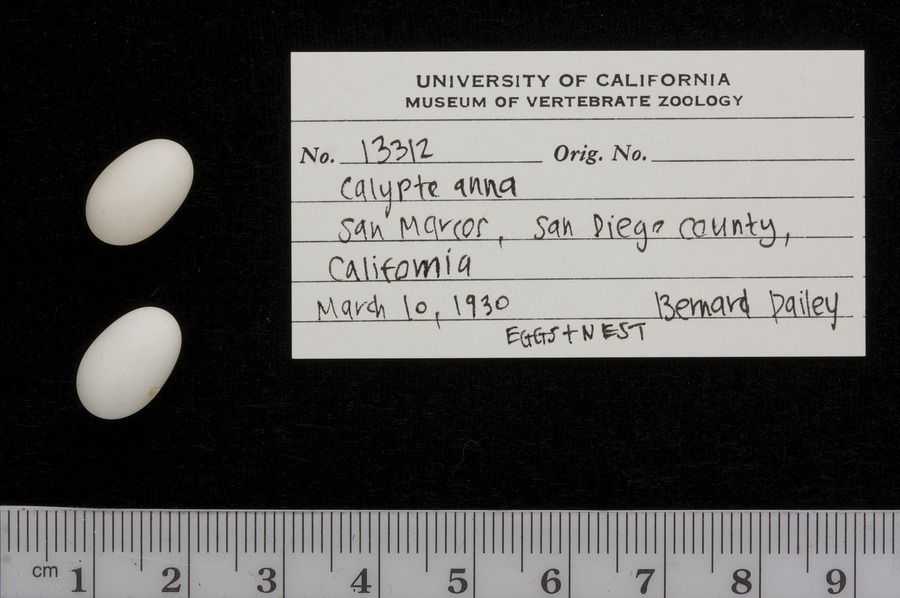 UNIVERSITY OF CALIFORNIA
MUSEUM OF VERTEBRATE ZOOLOGY
No. 13312 Orig. No.
Calypte anna
San Marcos, San Diego county,
California
March 10, 1930 Bernard Dailey
EGGS + NEST
cm 1 2 3 4 5 6 7 8 9